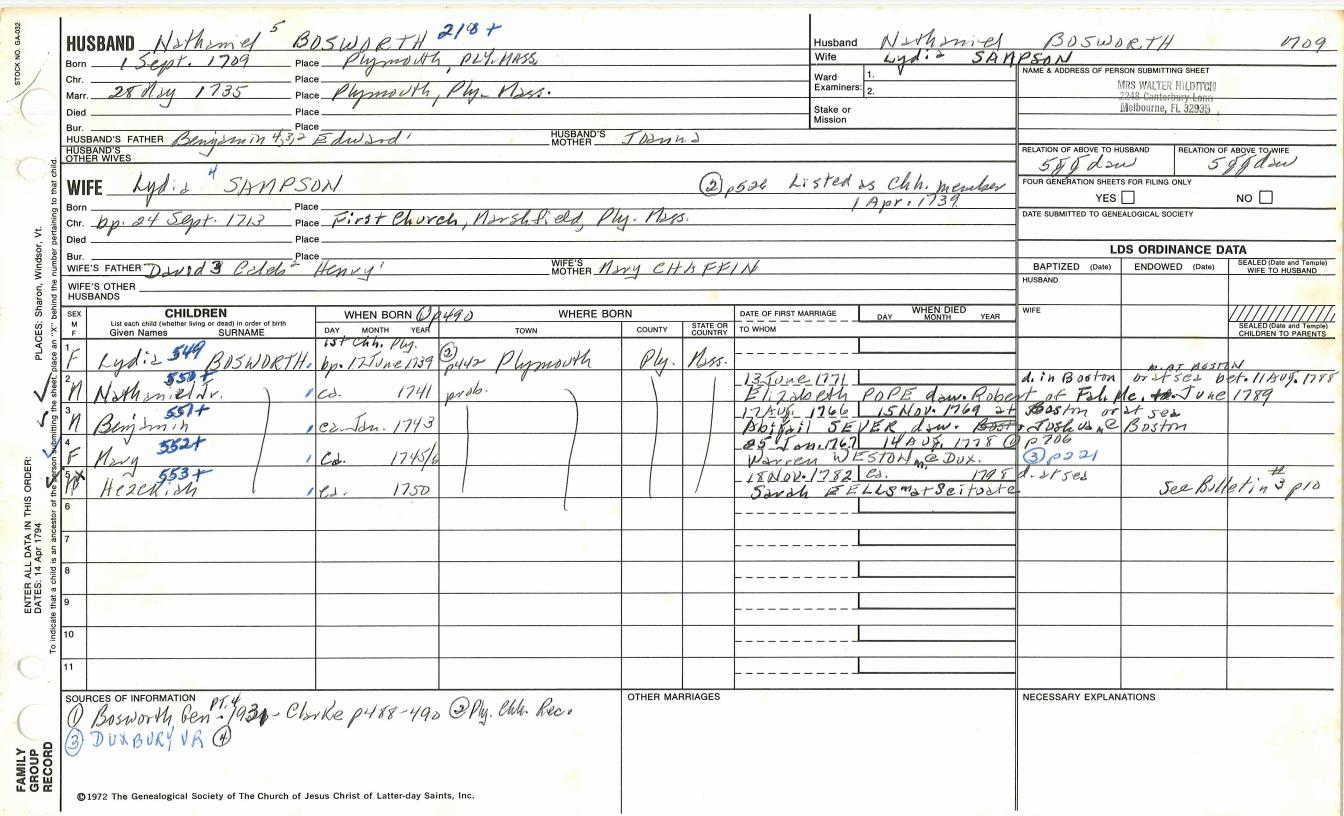 STOCK NO. GA-032
HUSBAND Nathaniel 5 BOSWORTH 218+
Born 1 Sept. 1709 Place Plymouth, PLY. MASS.
Chr. Place
Marr. 28 May 1735 Place Plymouth, Ply. Mass.
Died Place
Bur. Place
HUSBAND'S FATHER Benjamin 4,3,2 Edward 1 HUSBAND'S MOTHER Joanna
HUSBAND'S OTHER WIVES
Husband Nathaniel BOSWORTH 1709
Wife Lydia SAMPSON
Ward Examiners: 1.
2.
Stake or Mission
NAME & ADDRESS OF PERSON SUBMITTING SHEET
MRS WALTER HILDITCH
2248 Canterbury Lane
Melbourne, FL 32935
RELATION OF ABOVE TO HUSBAND RELATION OF ABOVE TO WIFE
5ggdau 5ggdau
FOUR GENERATION SHEETS FOR FILING ONLY
YES NO
DATE SUBMITTED TO GENEALOGICAL SOCIETY
WIFE Lydia 4 SAMPSON ② p526 Listed as Chh. member
1 Apr. 1739
Born Place
Chr. bp. 24 Sept. 1713 Place First Church, Marshfield, Ply. Mass.
Died Place
Bur. Place
WIFE'S FATHER David 3 Caleb 2 Henry 1 WIFE'S MOTHER Mary CHAFFIN
WIFE'S OTHER HUSBANDS
LDS ORDINANCE DATA
BAPTIZED (Date) ENDOWED (Date) SEALED (Date and Temple) WIFE TO HUSBAND
HUSBAND
WIFE
SEALED (Date and Temple) CHILDREN TO PARENTS
SEX M F
CHILDREN
List each child (whether living or dead) in order of birth
Given Names SURNAME
WHEN BORN ① p490 WHERE BORN
DAY MONTH YEAR TOWN COUNTY STATE OR COUNTRY
DATE OF FIRST MARRIAGE
TO WHOM
WHEN DIED
DAY MONTH YEAR
1 F Lydia 549 BOSWORTH 1st Chh. Ply. bp. 17 June 1739 ② p442 Plymouth Ply. Mass.
2 M Nathaniel Jr. 550+ ca. 1741 prob. 13 June 1771 d. in Boston or at sea bet. 11 Aug. 1788
m. AT BOSTON
Elizabeth POPE daw. Robert of Fal. Me. June 1789
3 M Benjamin 551+ ca Jan. 1743 17 AUG. 1766 15 NOV. 1769 at Boston or at sea
Abigail SEVER daw. Joshua @ Boston
4 F Mary 552+ ca. 1745/6 25 Jan. 1767 14 AUG. 1778 ① p706
Warren WESTON m @ Dux. ③ p221
5 X M Hezekiah 553+ ca. 1750 18 NOV. 1782 ca. 1798 d. at sea
Sarah EELLS m at Scituate See Bulletin #3 p10
6
7
8
9
10
11
SOURCES OF INFORMATION
① Bosworth Gen. PT. 4 - Clarke p488-490 ② Ply. Chh. Rec.
③ DUXBURY VR ④
OTHER MARRIAGES
NECESSARY EXPLANATIONS
©1972 The Genealogical Society of The Church of Jesus Christ of Latter-day Saints, Inc.
ENTER ALL DATA IN THIS ORDER:
DATES: 14 Apr 1794
PLACES: Sharon, Windsor, Vt.
To indicate that a child is an ancestor of the person submitting the sheet, place an "X" behind the number pertaining to that child.
FAMILY GROUP RECORD